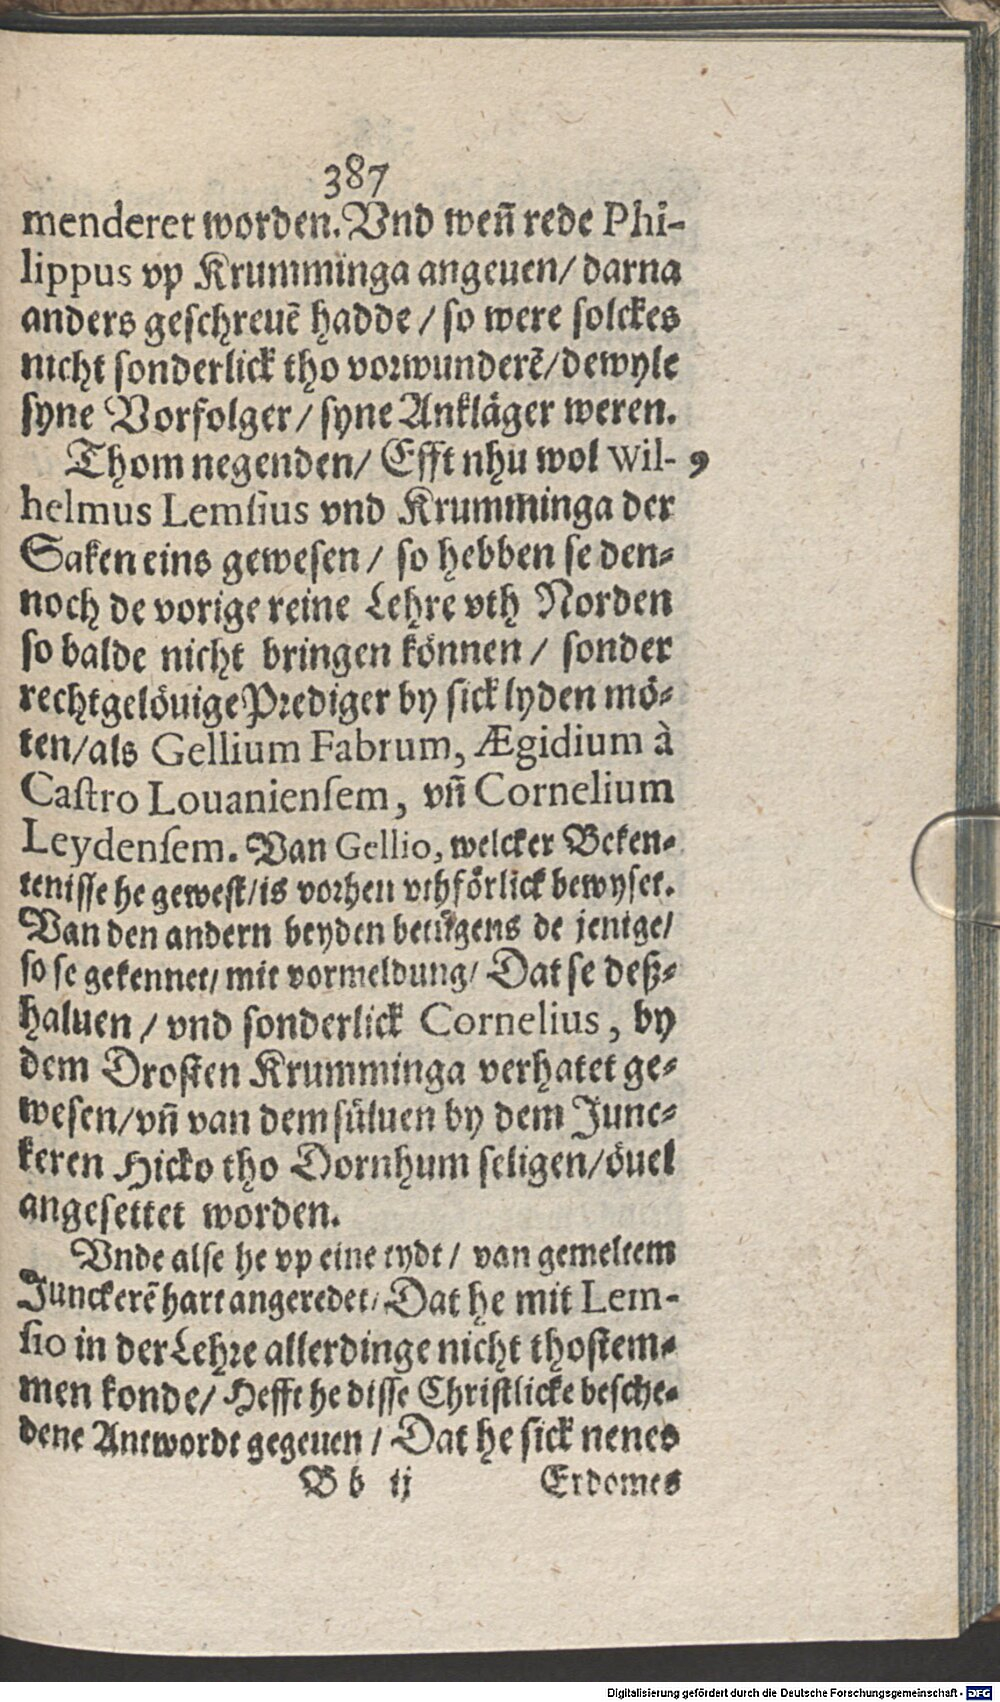 387
menderet worden. Vnd weñ rede Phi-
lippus vp Krumminga angeuen/ darna
anders geschreuẽ hadde / so were solckes
nicht sonderlick tho vorwunderẽ/dewyle
syne Vorfolger / syne Ankläger weren.
Thom negenden/ Efft nhu wol Wil- 9
helmus Lemsius vnd Krumminga der
Saken eins gewesen / so hebben se den-
noch de vorige reine Lehre vth Norden
so balde nicht bringen können / sonder
rechtgelöuige Prediger by sick lyden mö-
ten/als Gellium Fabrum, Ægidium à
Castro Louaniensem, vñ Cornelium
Leydensem. Van Gellio, welcker Beken-
tenisse he gewest/is vorhen vthförlick bewyset.
Van den andern beyden betügens de jenige/
so se gekennet/ mit vormeldung/ Dat se deß-
haluen / vnd sonderlick Cornelius, by
dem Drosten Krumminga verhatet ge-
wesen/vñ van dem süluen by dem Junc-
keren Hicko tho Dornhum seligen/övel
angesettet worden.
Vnde alse he vp eine tydt / van gemeltem
Junckerẽ hart angeredet/ Dat he mit Lem-
sio in der Lehre allerdinge nicht thostem-
men konde/ Hefft he disse Christlicke besche-
dene Antwordt gegeuen / Dat he sick nenes
B b ij Erdomes
Digitalisierung gefördert durch die Deutsche Forschungsgemeinschaft - DFG